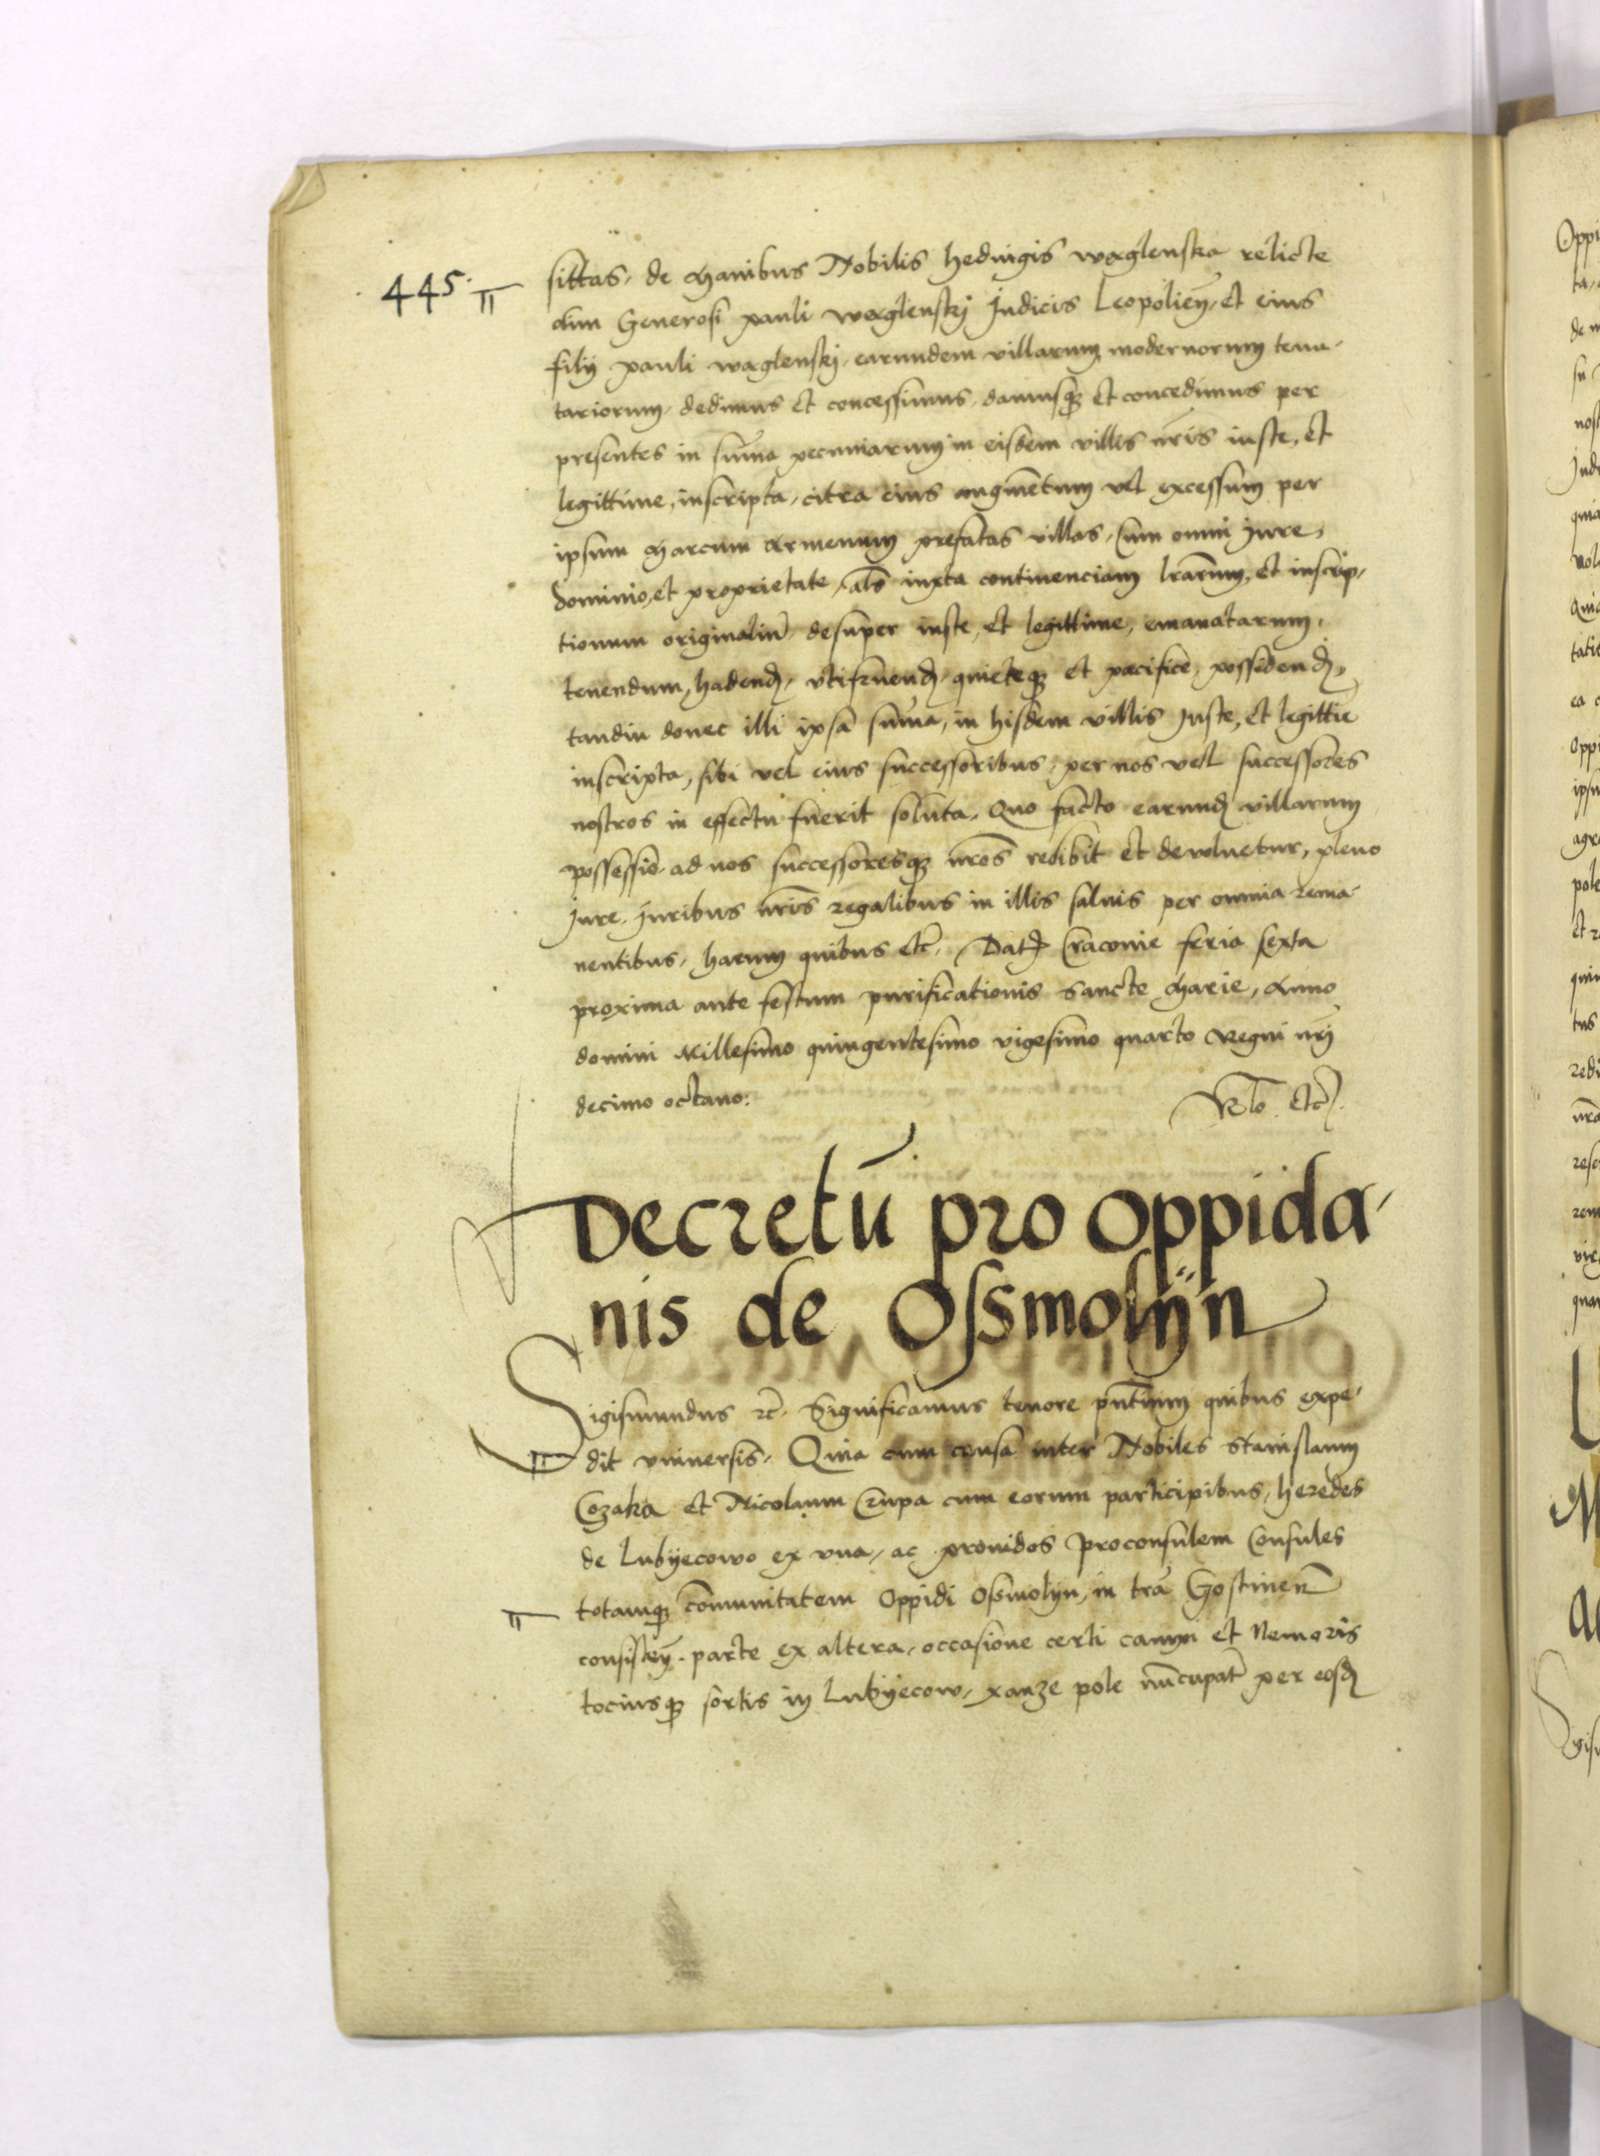 445.
sittas, de Manibus Nobilis hedwigis waglenska relicte
olim Generosi pauli waglenskj Judicis Leopolieñ, et eius
filij pauli waglenskj, earundem villarum modernorum tenu-
tariorum, dedimus et concessimus, damusq3 et concedimus per
presentes in sum̃a pecuniarum in eisdem villis nr̃is iuste, et
legittime, inscripta, citra eius augmẽtum vel excessum per
ipsum Marcum Armenum prefatas villas, Cum omni Jure,
dominio, et proprietate, als̃ iuxta continenciam lr̃arum, et inscrip-
tionum originaliũ, desuper iuste, et legittime, emanatarum,
tenendum, habenđ, vtifruenđ, quieteq3 et pacifice, possidenđ,
tandiu donec illi ipsa sum̃a, in hisdem villis Juste, et legittiẽ
inscripta, sibi vel eius successoribus, per nos vell successores
nostros in effectu fuerit soluta, Quo facto earunđ villarum
possessio ad nos successoresq3 nr̃os redibit et deuoluetur, pleno
Jure. Juribus nr̃is regalibus in illis saluis per omnia rema-
nentibus, harum quibus etc̃. Dat̃ Cracouie feria sexta
proxima ante festum purificationis Sancte Marie, Anno
domini Millesimo quingentesimo vigesimo quarto Regni nr̃j
decimo octauo:
R̃lo. etc̃.
Decretũ pro oppida-
nis de Ossmolÿn
Sigismundus ec̃. Significamus tenore pñtium quibus expe-
dit vniuersis. Quia cum causa inter Nobiles Stanislaum
Cozaka et Nicolaum Crupa cum eorum participibus, heredes
de Lubyecowo ex vna, ac prouidos Proconsulem Consules
totamq3 com̃unitatem Oppidi Osmolyn, in tr̃a Gostinen̄
consisteñ. parte ex altera, occasione certi campi et Nemoris
tociusq3 sortis in Lubyecow, xanze pole nũcupat̃ per eosđ